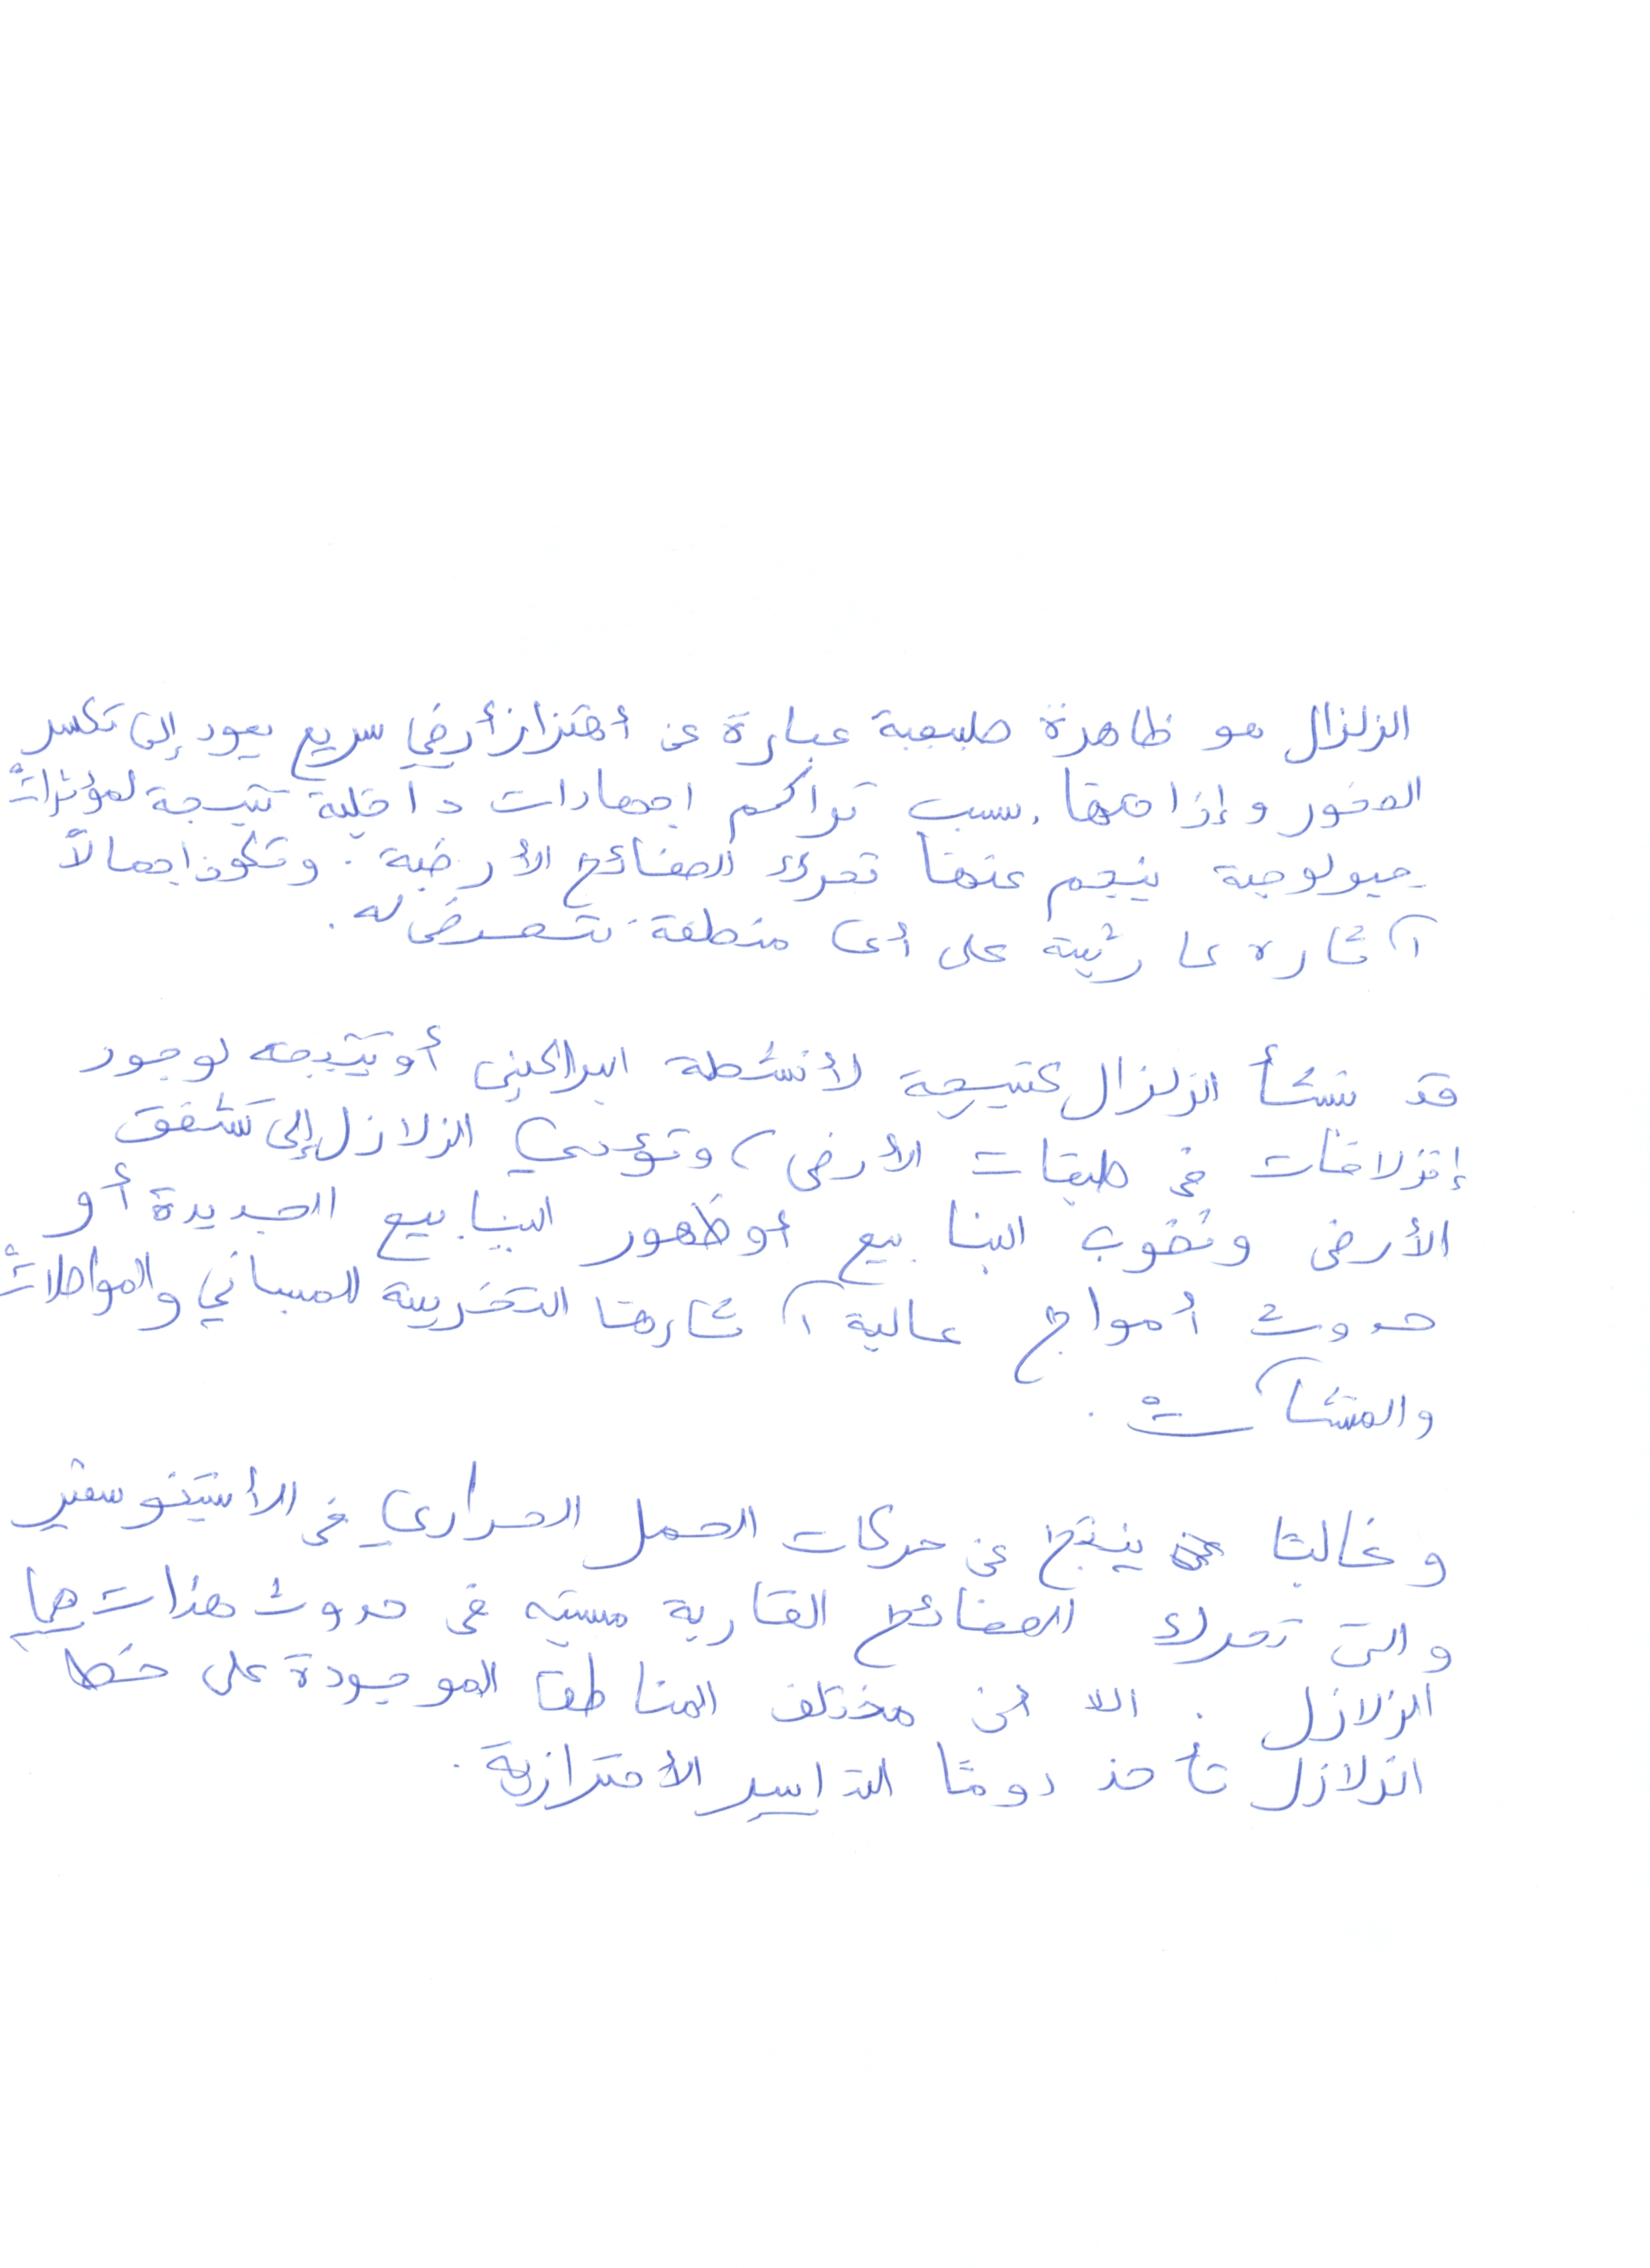 الزلزال هو ظاهرة طبيعية عبارة عن أهتزاز أرضي سريع يعود إلى تكسر
الصخور وإزاحتها بسبب تراكم اجهادات داخلية نتيجة لمؤثرات
جيولوجية ينجم عنها تحرك الصفائح الأرضية. وتكون اجمالاً
آثاره كارثية على أى منطقة تتعرض له.
قد ينشأ الزلزال كنتيجة لأنشطة البراكين أو نتيجه لوجود
إنزلاقات فى طبقات الأرض، وتؤدي الزلازل إلى تشقق
الأرض ونضوب الينابيع أو ظهور الينابيع الجديدة أو
حدوث أمواج عالية آثارها التخريبية للمباني والمواصلات
والمنشآت.
وغالبا ينتج عن حركات الحمل الحراري فى الأستينوسفير
والتى تحرك الصفائح القارية فى حدوث هزات هما
الزلازل. الا أن مختلف المناطق الموجودة على خط
الزلازل تأخذ دوما التدابير الأحترازية.